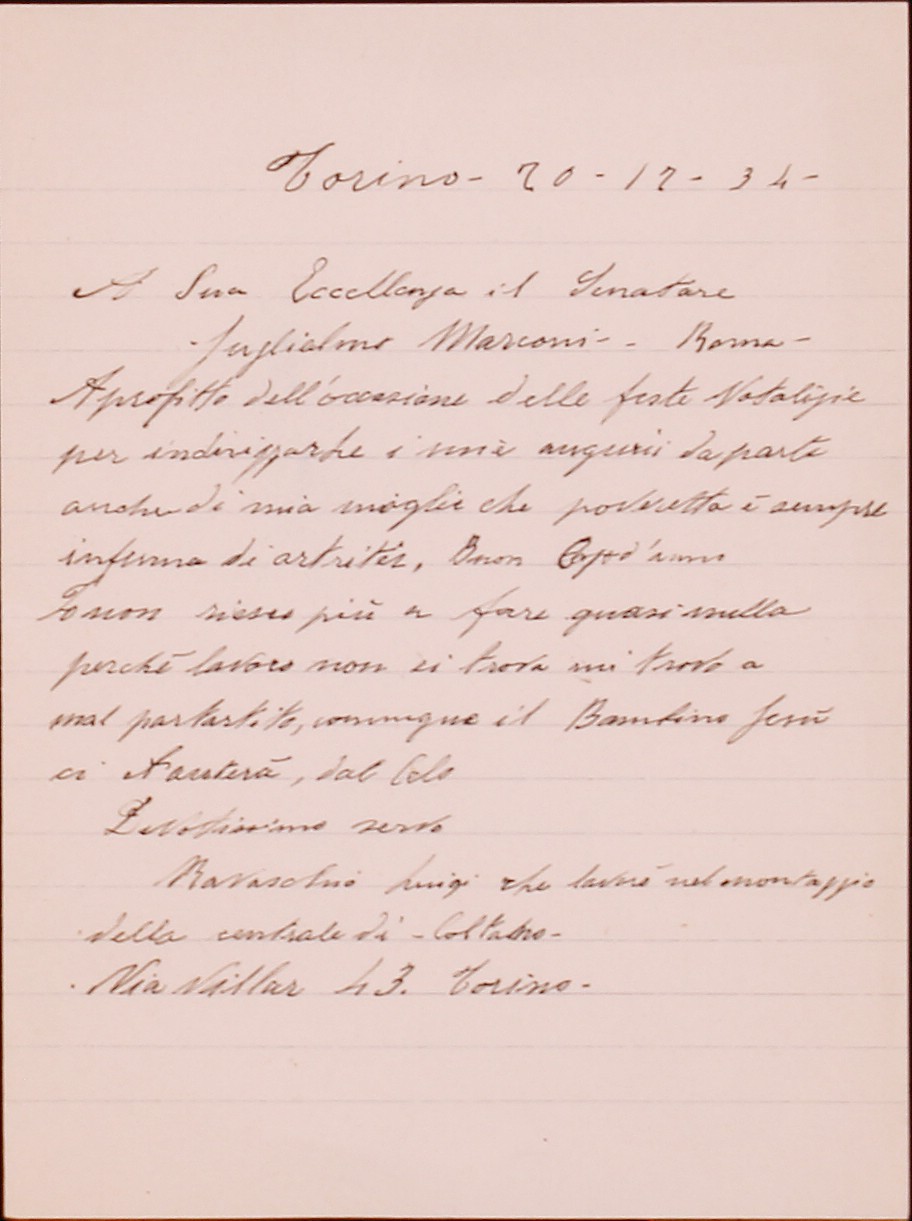 Torino - 20 - 12 - 34 -
A Sua Eccellenza il Senatore
Guglielmo Marconi - - Roma -
Aprofitto dell'occasione delle feste Natalizie
per indirizzarle i miè augurii da parte
anche di mia moglie che poveretta è sempre
inferma di artritis, Buon Capod'anno
Io non riesco più a fare quasi nulla
perchè lavoro non si trova mi trovo a
mal partartito, comunque il Bambino Jesù
ci Aiuterà, dal Celo
Devotissimo servo
Ravaschio Luigi che lavorè nel montaggio
della centrale di - Coltano -
Via Villar 43. Torino -